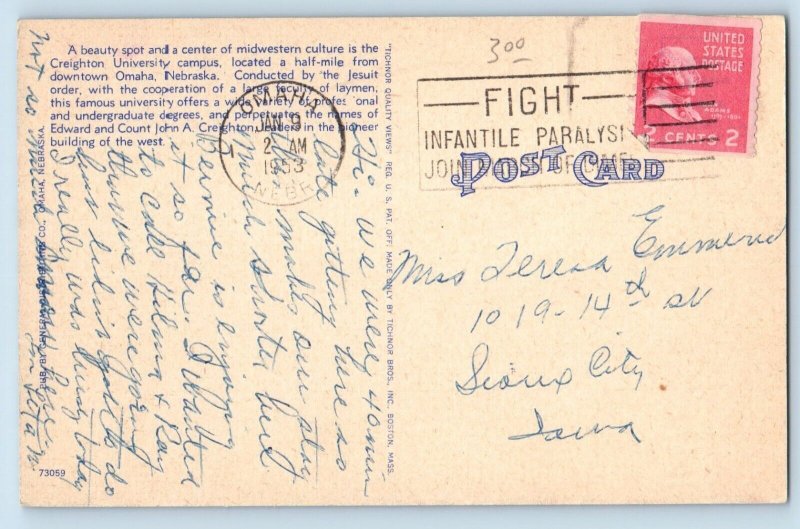 A beauty spot and a center of midwestern culture is the
Creighton University campus, located a half-mile from
downtown Omaha, Nebraska. Conducted by the Jesuit
order, with the cooperation of a large faculty of laymen,
this famous university offers a wide variety of profes onal
and undergraduate degrees, and perpetuates the names of
Edward and Count John A. Creighton, leaders in the pioneer
building of the west.
OMAHA
JAN 3
2 AM
1953
NEBR
"TICHNOR QUALITY VIEWS" REG. U. S. PAT. OFF. MADE ONLY BY TICHNOR BROS., INC. BOSTON, MASS.
PUB. BY CO., OMAHA, NEBRASKA
73059
Hi: We were 40 min
late getting here so
makes our stay
much shorter but
Bernie is enjoying
it so far. I wanted
to call Hilma & Ray
than we were going
but
I really was
300
FIGHT
INFANTILE PARALYSI
JOIN
POST CARD
UNITED
STATES
POSTAGE
ADAMS
2 CENTS 2
Miss Teresa Emmerich
1019-14th St
Sioux City
Iowa